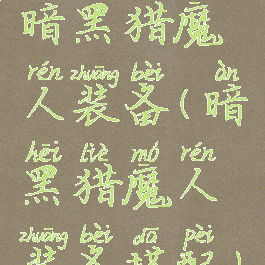 暗黑猎魔
rén zhuāng bèi àn
人装备(暗
hēi liè mó rén
黑猎魔人
zhuāng bèi dā pèi
装备搭配)